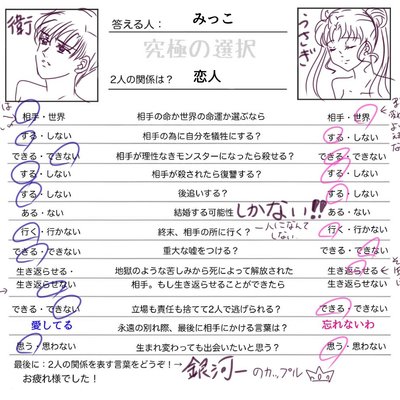 衛
答える人： みっこ
うさぎ
究極の選択
2人の関係は？ 恋人
相手・世界 相手の命か世界の命運か選ぶなら 相手・世界
する・しない 相手の為に自分を犠牲にする？ する・しない
できる・できない 相手が理性なきモンスターになったら殺せる？ できる・できない
する・しない 相手が殺されたら復讐する？ する・しない
する・しない 後追いする？ する・しない
ある・ない 結婚する可能性 しかない!! ある・ない
行く・行かない 終末、相手の所に行く？ 一人になんてしない 行く・行かない
できる・できない 重大な嘘をつける？ できる・できない
生き返らせる・ 地獄のような苦しみから死によって解放された 生き返らせる・
生き返らせない 相手。もし生き返らせることができたら 生き返らせない
できる・できない 立場も責任も捨てて2人で逃げられる？ できる・できない
愛してる 永遠の別れ際、最後に相手にかける言葉は？ 忘れないわ
思う・思わない 生まれ変わっても出会いたいと思う？ 思う・思わない
最後に：2人の関係を表す言葉をどうぞ！→ 銀河一のカップル
お疲れ様でした！